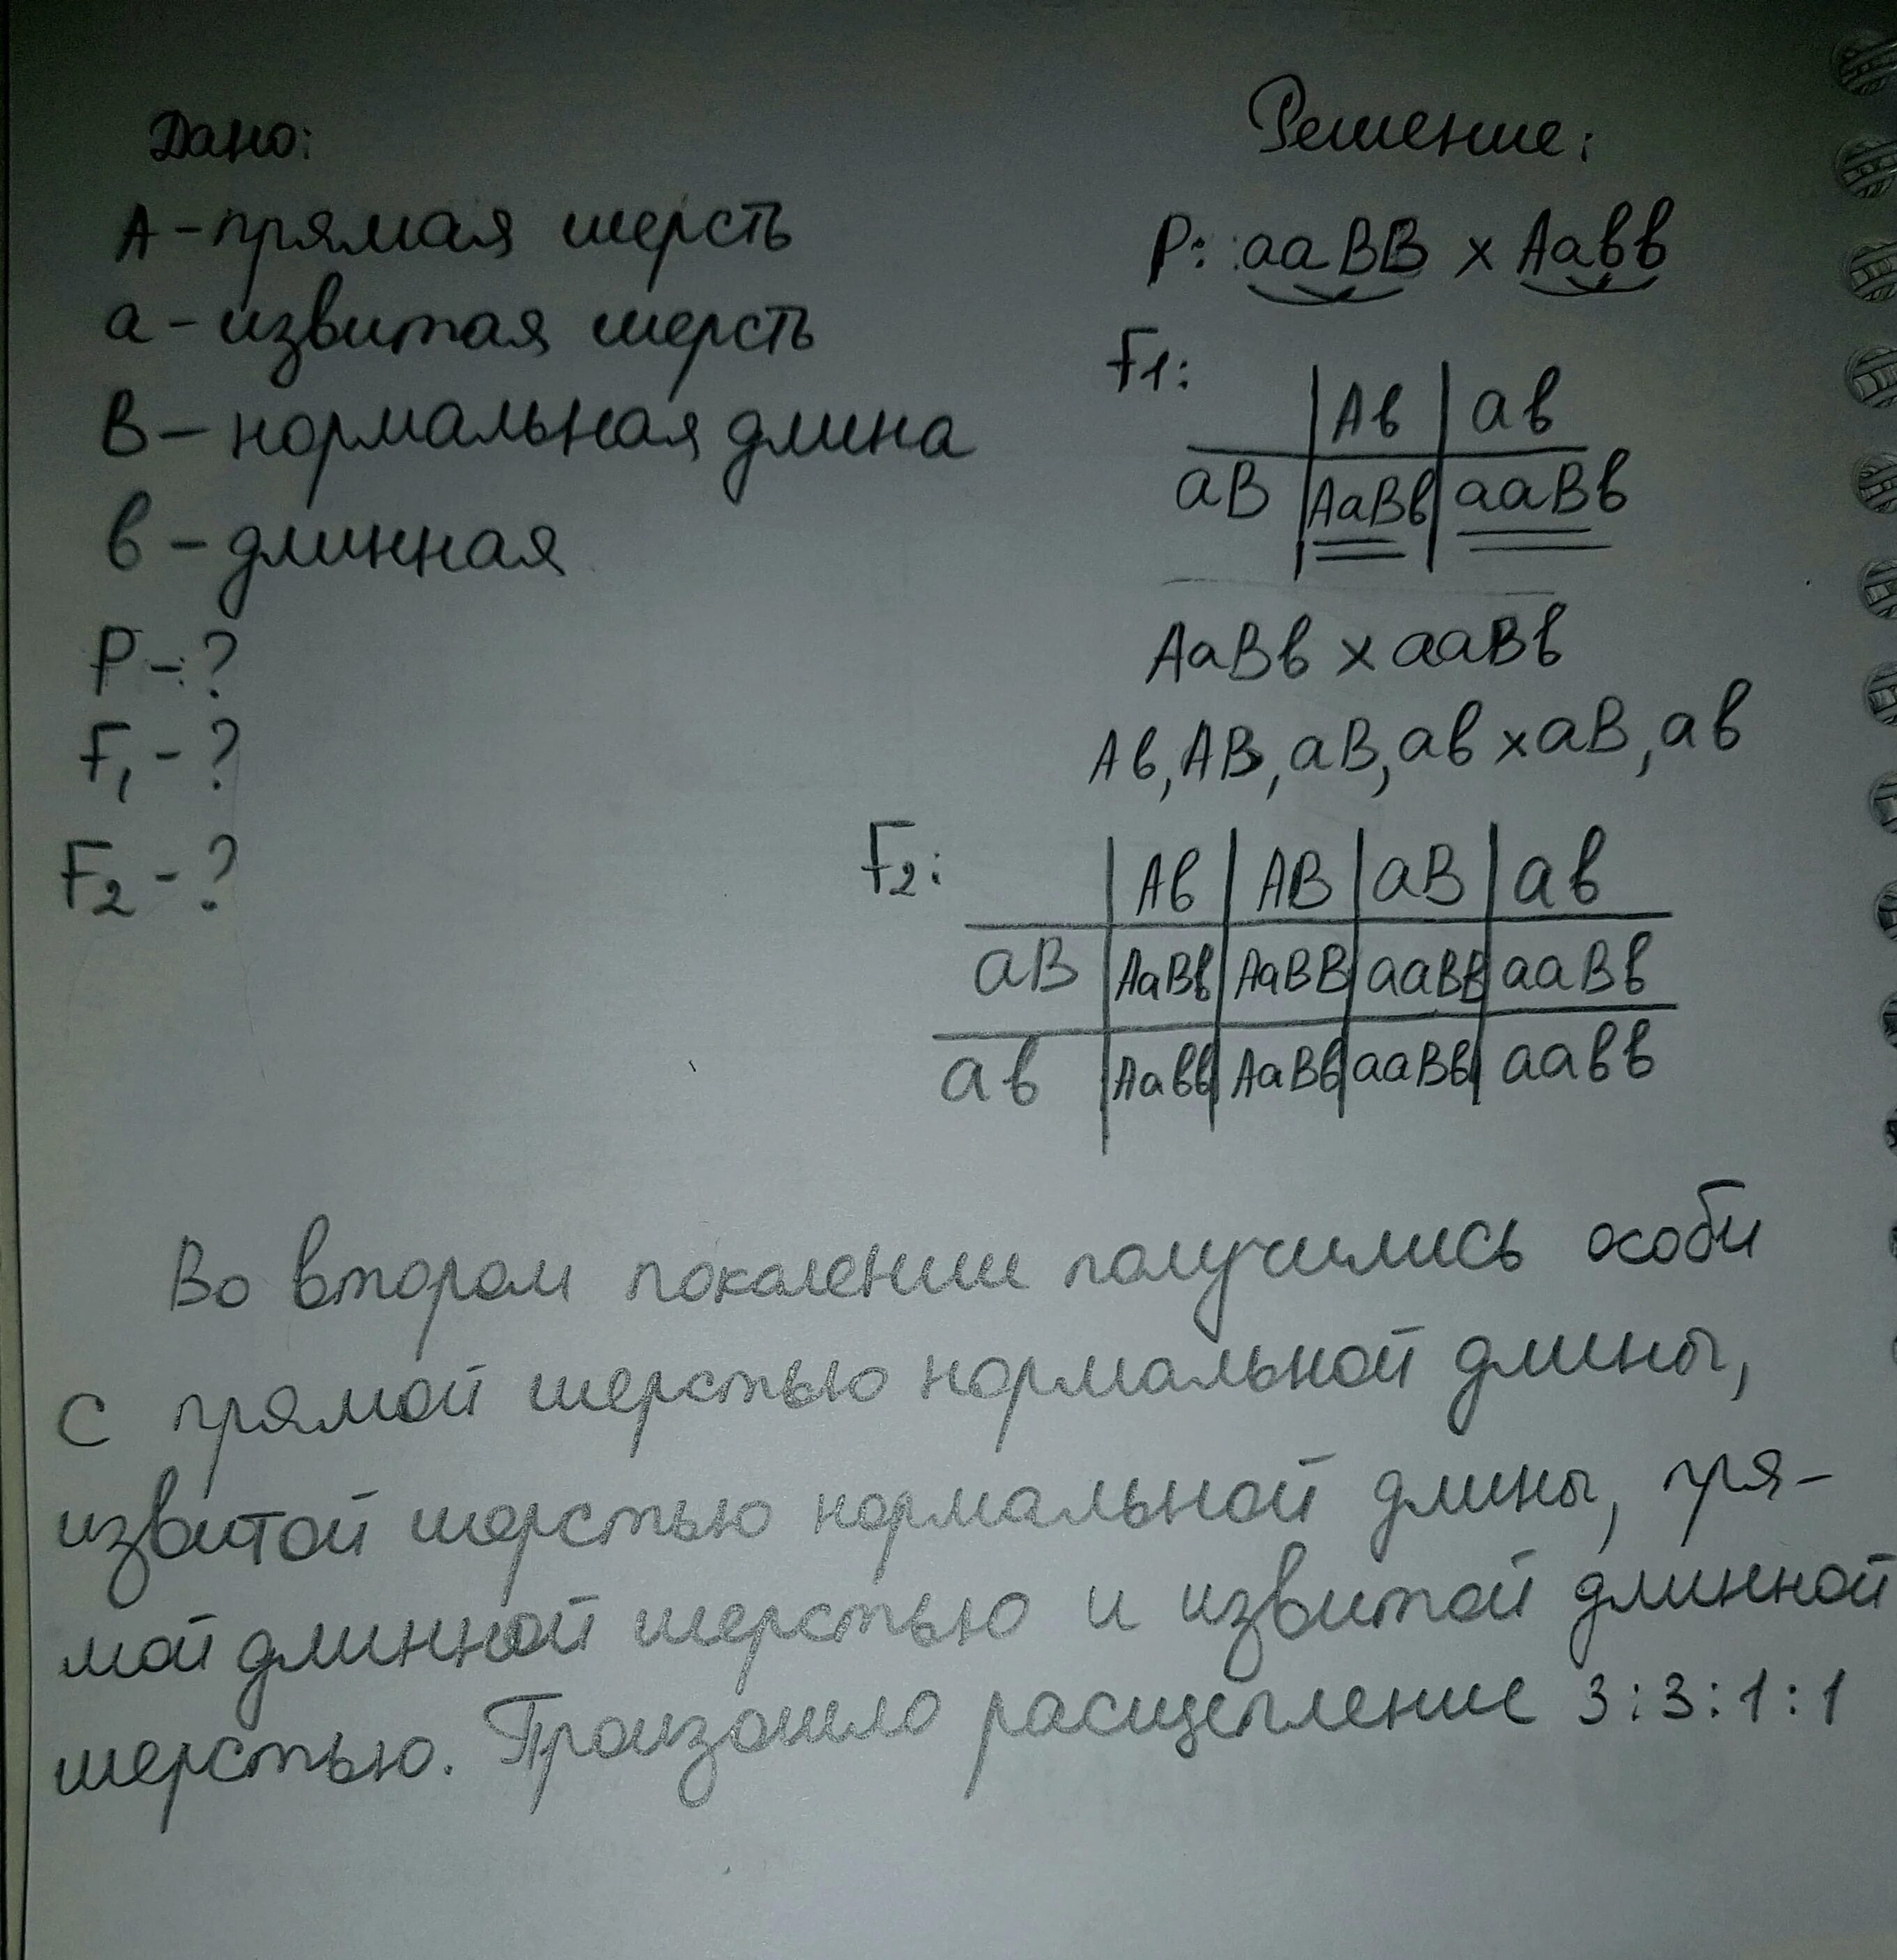 Дано:
А - прямая шерсть
а - извитая шерсть
В - нормальная длина
в - длинная
Р - ?
F₁ - ?
F₂ - ?
Решение:
Р: ааВВ х Аавв
F1:
Ав | ав
аВ | АаВв | ааВв
АаВв х ааВв
Ав, АВ, аВ, ав х аВ, ав
F2:
Ав | АВ | аВ | ав
аВ | АаВв | АаВВ | ааВВ | ааВв
ав | Аавв | АаВв | ааВв | аавв
Во втором поколении получились особи
с прямой шерстью нормальной длины,
извитой шерстью нормальной длины, пря-
мой длинной шерстью и извитой длинной
шерстью. Произошло расщепление 3:3:1:1